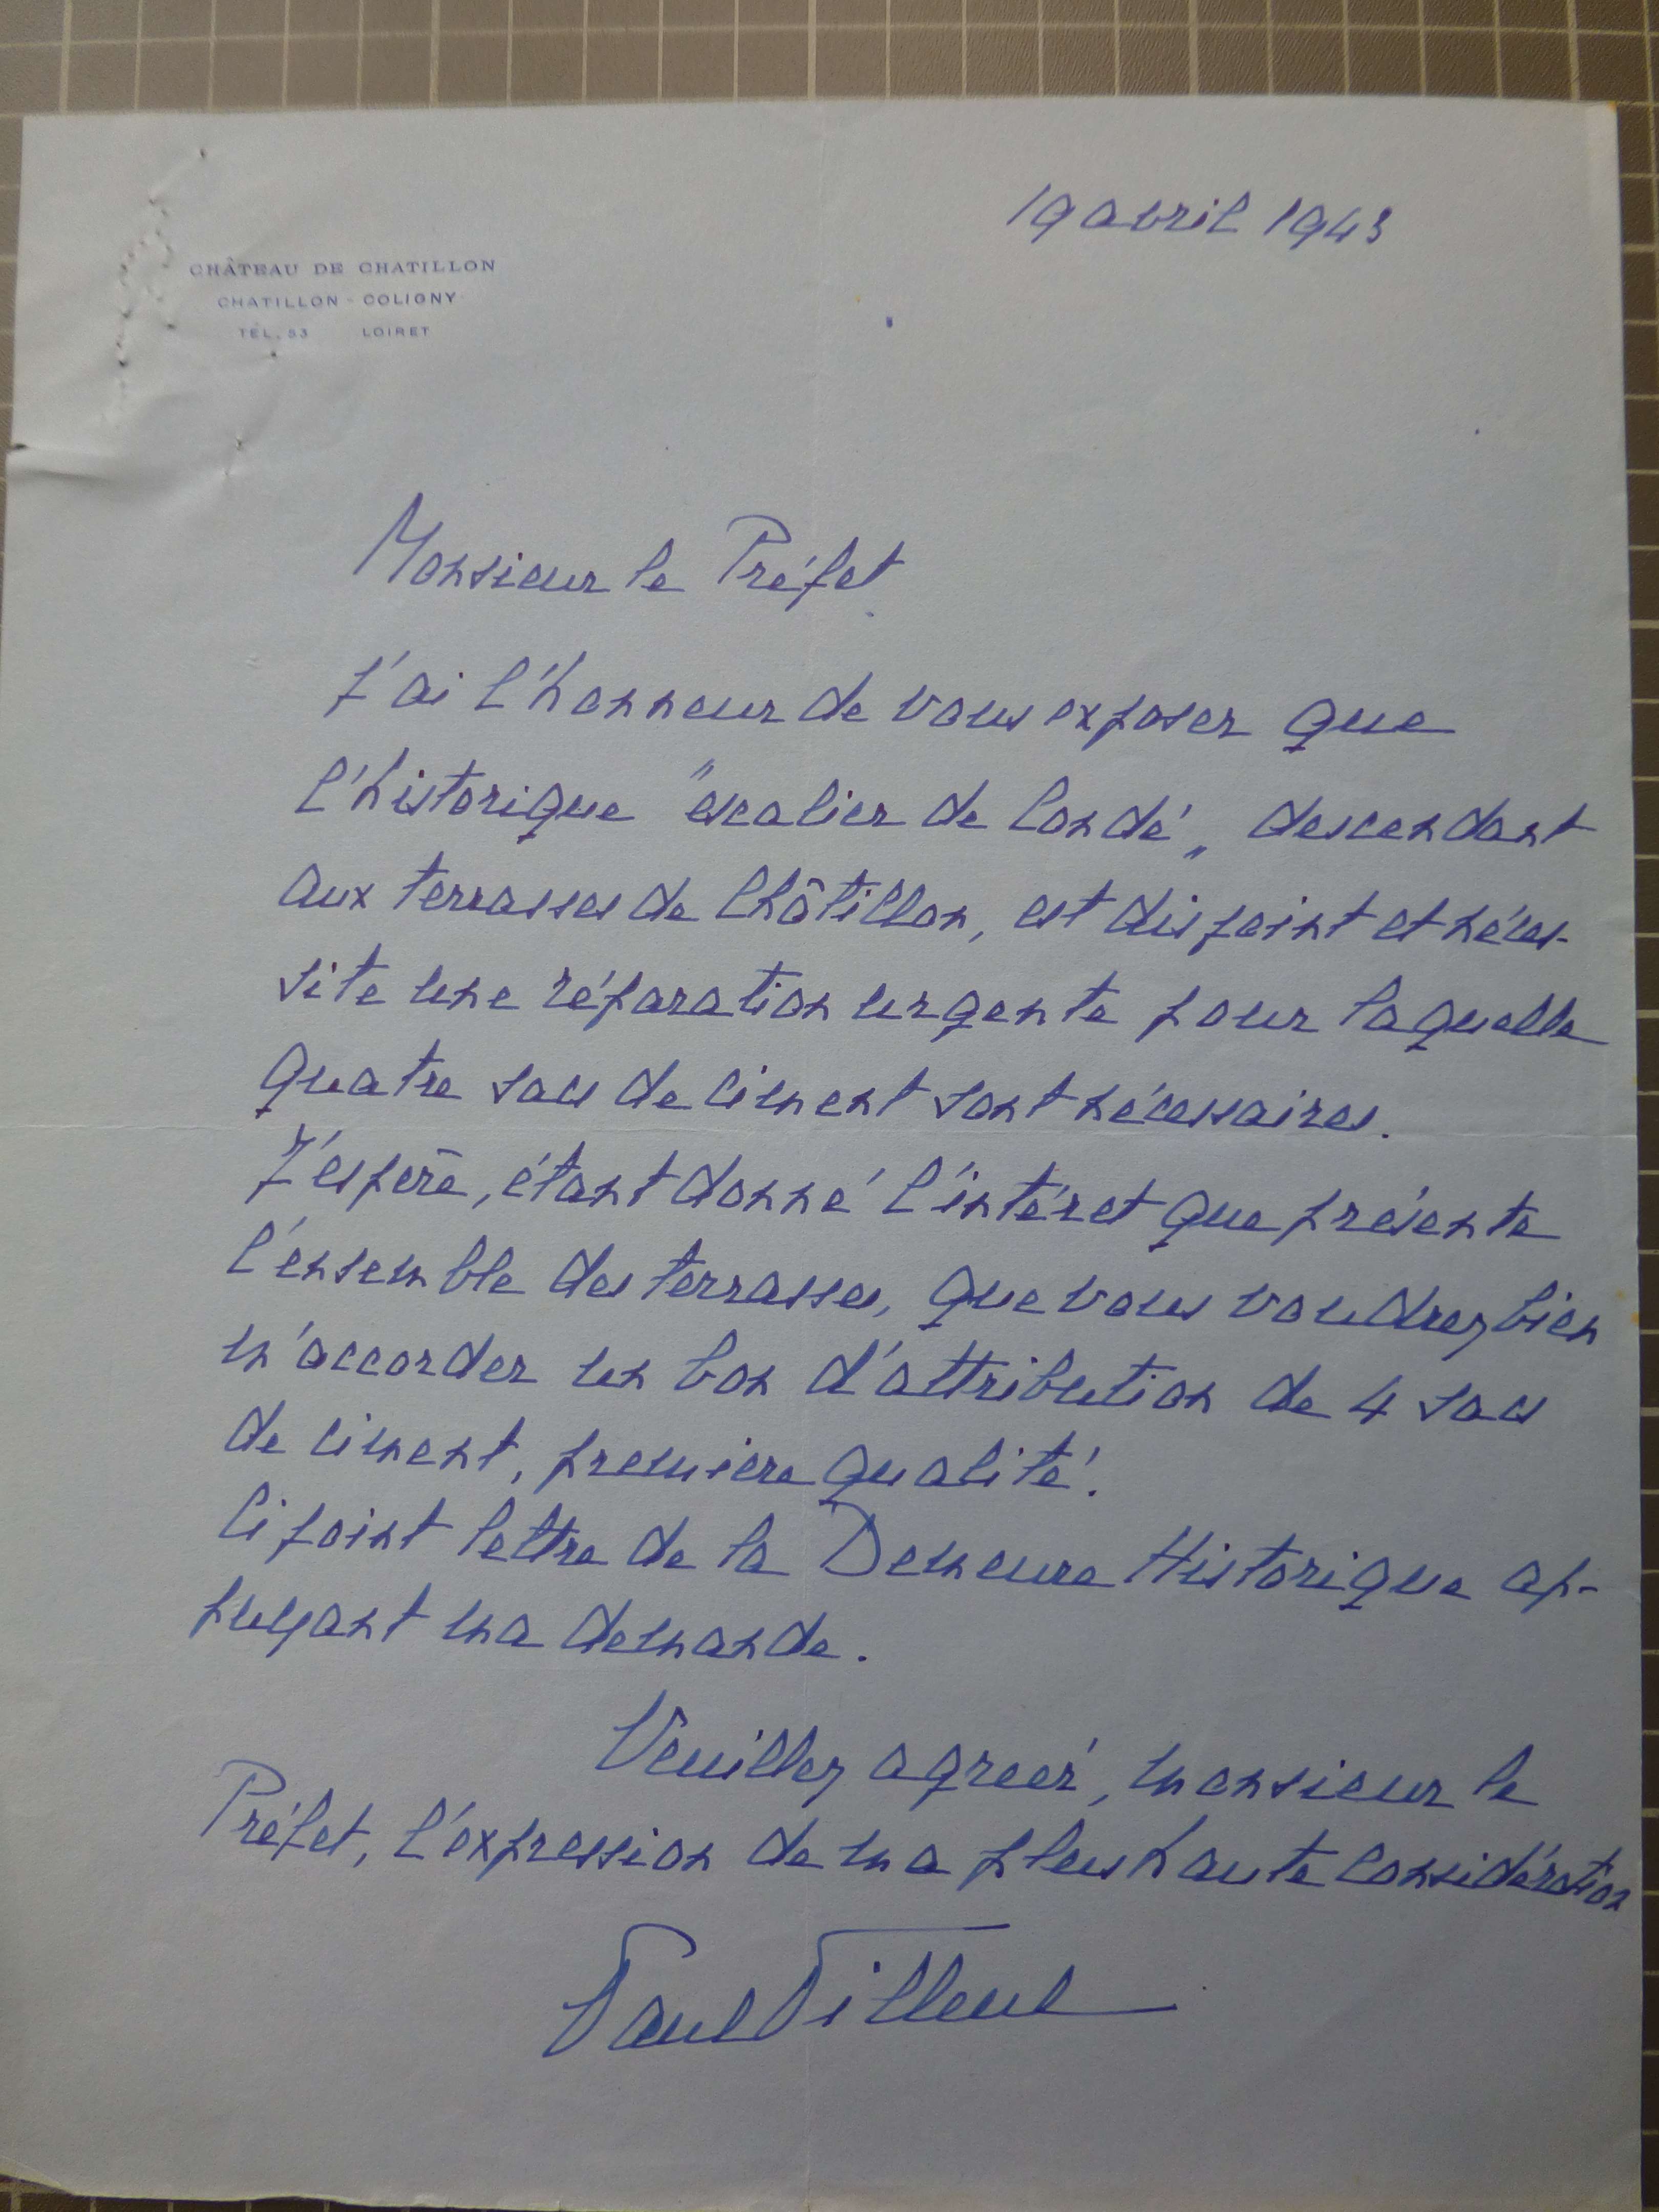 19 avril 1943
CHÂTEAU DE CHATILLON
CHATILLON - COLIGNY
TÉL. 53 LOIRET
Monsieur le Préfet
J'ai l'honneur de vous exposer que
l'historique "escalier de Condé„ descendant
aux terrasses de Châtillon, est disjoint et néces-
site une réparation urgente pour laquelle
quatre sacs de ciment sont nécessaires.
J'espère, étant donné l'intéret que présente
l'ensemble des terrasses, que vous voudrez bien
m'accorder un bon d'attribution de 4 sacs
de ciment, premiere qualité.
Ci joint lettre de la Demeure Historique ap-
puyant ma demande.
Veuillez agréer, monsieur le
Préfet, l'expression de ma plus haute considération
Paul Tilleul